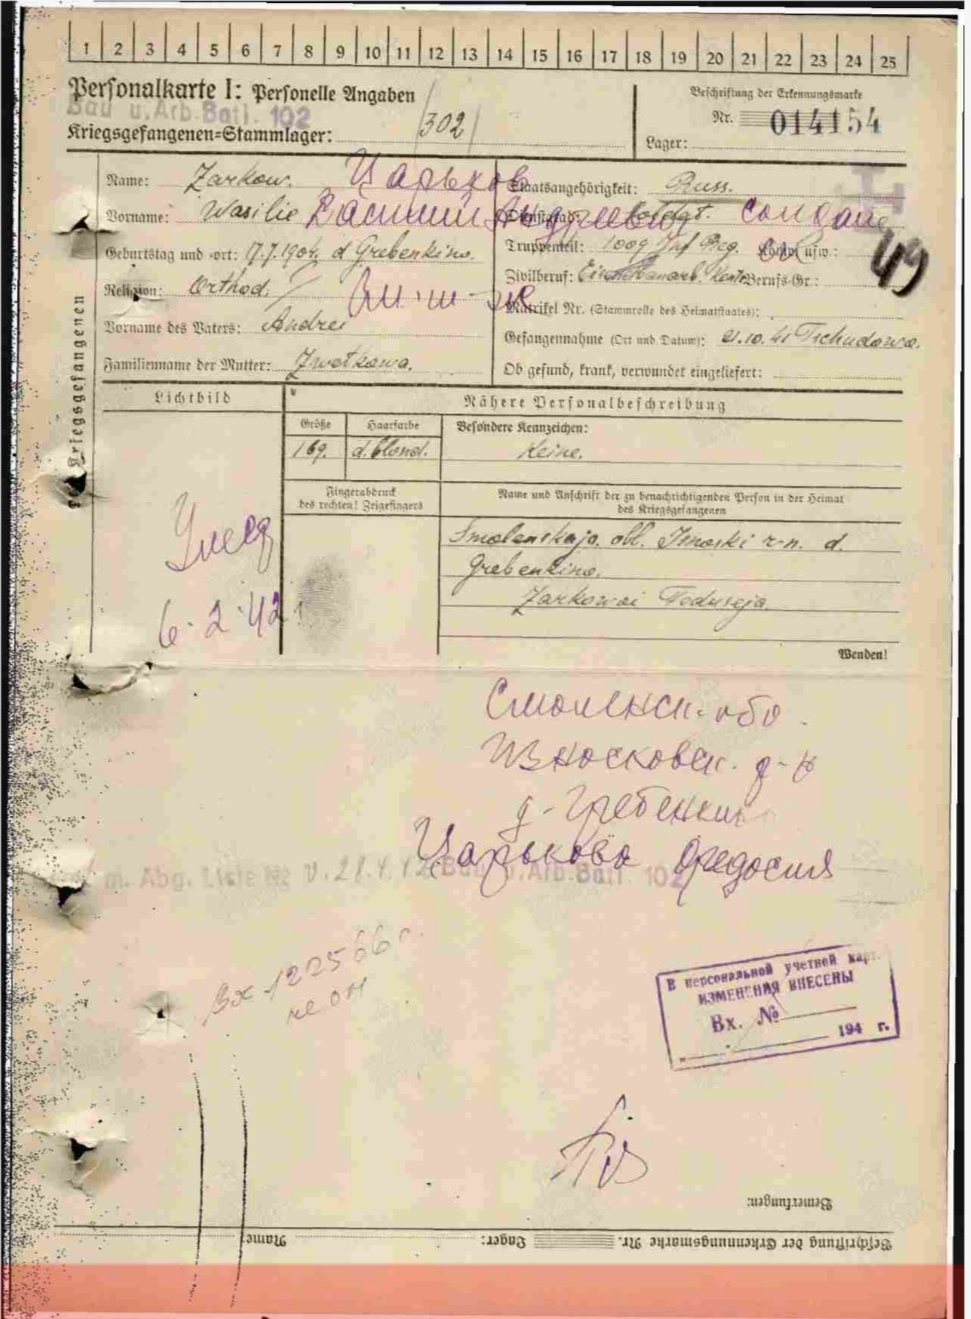 1 2 3 4 5 6 7 8 9 10 11 12 13 14 15 16 17 18 19 20 21 22 23 24 25
Personalkarte I: Personelle Angaben
Beschriftung der Erkennungsmarke
Bau u. Arb. Batl. 102
Nr. 014154
Kriegsgefangenen=Stammlager: 302
Lager:
Name: Zarkow. Царьков
Staatsangehörigkeit: Russ.
Vorname: Wasilie Василий Андреевич
Dienstgrad: Soldat. солдат
Geburtstag und -ort: 17.7.1904. d Grebenkino.
Truppenteil: 1009 Inf Reg. Kom. usw.:
49
Religion: Orthod.
Zivilberuf: Berufs-Gr.:
Matrikel Nr. (Stammrolle des Heimatstaates):
Vorname des Vaters: Andrei
Gefangennahme (Ort und Datum): 21.10.41 Tschudowo.
Familienname der Mutter: Zwetkowa.
Ob gesund, krank, verwundet eingeliefert:
Des Kriegsgefangenen
Lichtbild
Nähere Personalbeschreibung
Größe Haarfarbe Besondere Kennzeichen:
169. d. blond. Keine.
Fingerabdruck
des rechten! Zeigefingers
Name und Anschrift der zu benachrichtigenden Person in der Heimat
des Kriegsgefangenen
Smolenskaja. obl. Isnoski r-n. d.
Grebenkino.
Zarkowai Feduseja.
Умер
6.2.42
Wenden!
Смоленск. обл.
Износковск. р-н
д-Гребенкино
Царькова Федосия
m. Abg. Liste Nr v. 28.4.42 Bau u. Arb. Batl. 102
Вх 122566 с.
не он
В персональной учетной карт.
ИЗМЕНЕНИЯ ВНЕСЕНЫ
Вх. №
194 г.
Bemerkungen:
Beschriftung der Erkennungsmarke Nr. Lager: Name: